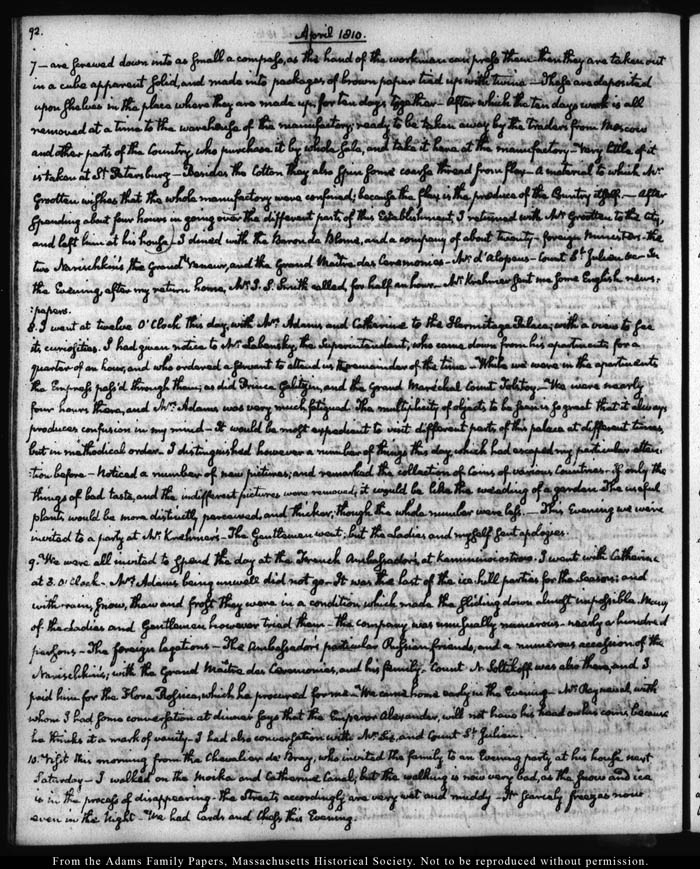 92.
April 1810.
7 — are screwed down into as small a compass, as the hand of the workman can press them then they are taken out
in a cube apparent solid, and made into packages of brown paper tied up with twine — These are deposited
upon shelves in the place where they are made up, for ten days together — After which the ten days work is all
removed at a time to the warehouse of the manufactory ready to be taken away by the traders from Moscow
and other parts of the Country, who purchase it by whole sale, and take it here at the manufactory — Very little of it
is taken at St. Petersburg — Besides the Cotton they also spun some coarse thread from flax — A material to which Mr
Grootten wishes that the whole manufactory were confined; because the flax is the produce of the Country itself. — After
spending about four hours in going over the different parts of this Establishment, I returned with Mr Grootten to the city,
and left him at his house) I dined with the Baron de Blome, and a company of about twenty — foreign Ministers — the
two Narischkin's the Grand Veneur, and the Grand Maitre des Ceremonies — Mr d'Alopeus — Count St. Julien &c — In
the Evening, after my return home, Mr J. S. Smith called, for half an hour — Mr Krehmer sent me some English news-
:papers.
8. I went at twelve O'Clock this day, with Mrs Adams and Catherine to the Hermitage Palace; with a view to see
its curiosities. I had given notice to Mr Labensky, the Superintendent, who came down from his apartments for a
quarter of an hour, and who ordered a servant to attend us the remainder of the time — While we were in the apartments
the Empress pass'd through them; as did Prince Galitzin, and the Grand Maréchal Count Tolstoy. — We were nearly
four hours there, and Mrs Adams was very much fatigued. The multiplicity of objects to be seen is so great that it always
produces confusion in my mind — It would be most expedient to visit different parts of this palace at different times,
but in methodical order. I distinguished however a number of things this day, which had escaped my particular atten-
:tion before — Noticed a number of new pictures; and remarked the collection of Coins of various Countries — If only the
things of bad taste, and the indifferent pictures were removed, it would be like the weeding of a garden — The useful
plants would be more distinctly perceived, and thicker, though the whole number were less. — This Evening we were
invited to a party at Mr Krehmer's — The Gentlemen went; but the Ladies and myself sent apologies.
9. We were all invited to spend the day at the French Ambassador's, at Kamminoiostrow. I went with Catherine
at 3. O'Clock — Mrs Adams being unwell did not go — It was the last of the ice-hill parties for the season; and
with rain, snow, thaw and frost they were in a condition which made the sliding down almost impossible. Many
of the Ladies and Gentlemen however tried them — the company was unusually numerous — nearly a hundred
persons — The foreign legations — The Ambassador's particular Russian friends, and a numerous accession of the
Narischkin's; with the Grand Maitre des Ceremonies, and his family. Count N. Soltikoff was also there, and I
paid him for the Flora Rossica, which he procured for me — We came home early in the Evening — Mr Rayneval, with
whom I had some conversation at dinner says that the Emperor Alexander, will not have his head on his coins, because
he thinks it a mark of vanity — I had also conversation with Mr Six, and Count St. Julien.
10. Visit this morning from the Chevalier de Bray, who invited the family to an Evening party, at his house next
Saturday — I walked on the Moika and Catherine Canal; but the walking is now very bad, as the snow and ice
is in the process of disappearing — the Streets accordingly are very wet and muddy — It scarcely freezes now
even in the Night — We had Cards and Chess this Evening.
From the Adams Family Papers, Massachusetts Historical Society. Not to be reproduced without permission.